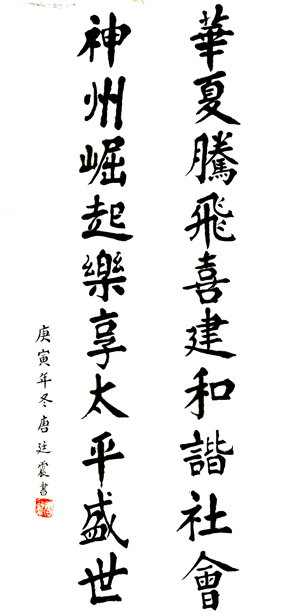 華夏騰飛喜建和諧社會
神州崛起樂享太平盛世
庚寅年冬唐廷震書